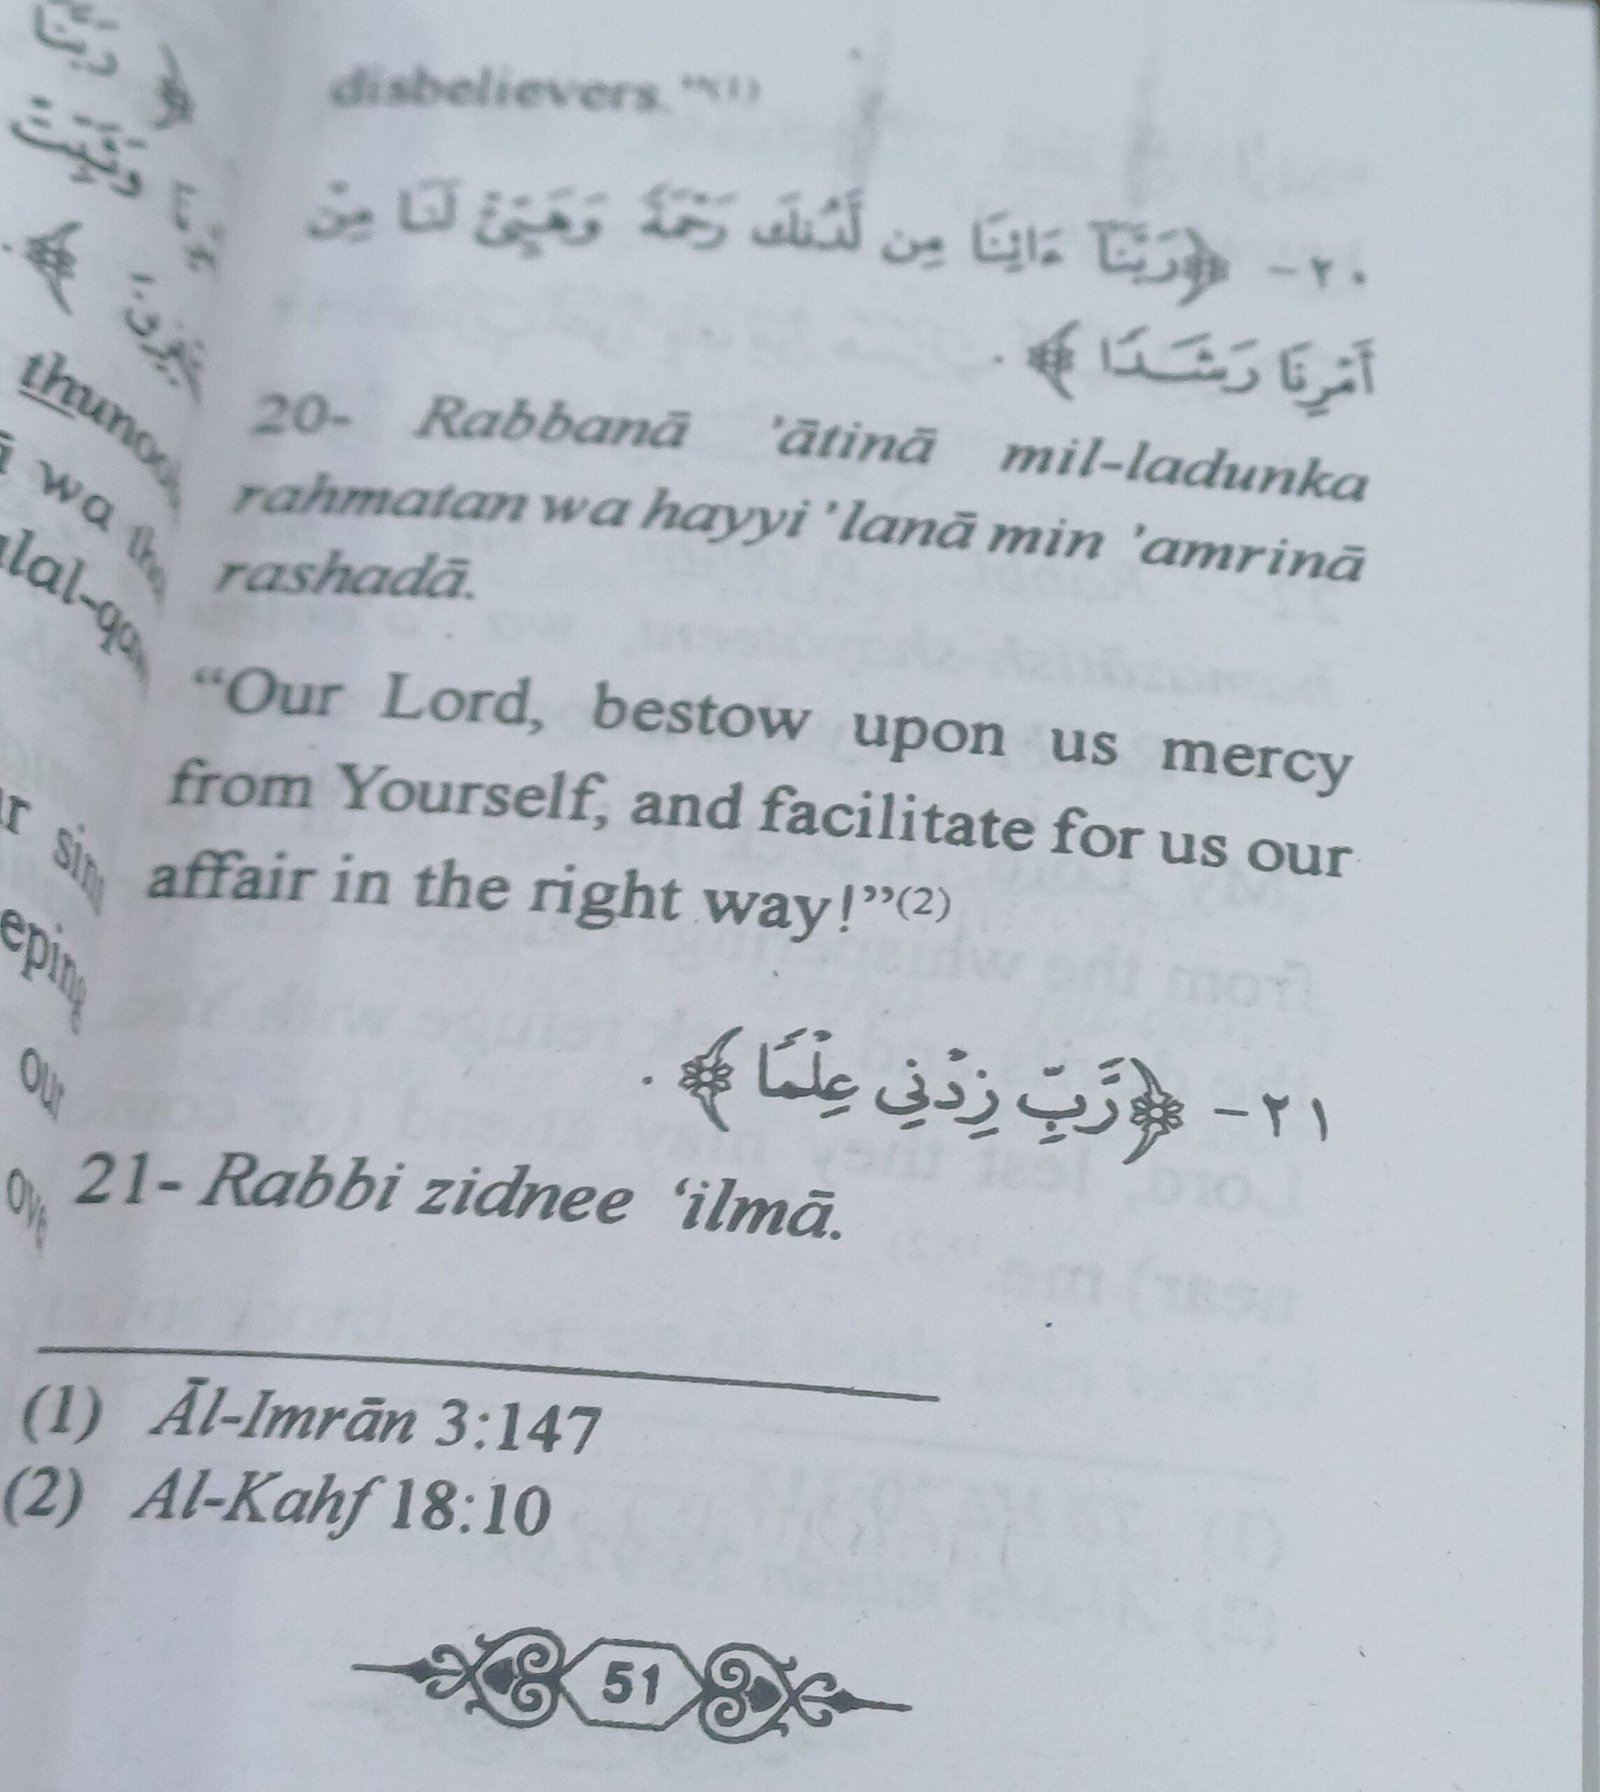 disbelievers."(1)
٢٠- ﴿رَبَّنَآ ءَاتِنَا مِن لَّدُنكَ رَحْمَةً وَهَيِّئْ لَنَا مِنْ
أَمْرِنَا رَشَدًا﴾ .
20- Rabbanā 'ātinā mil-ladunka
rahmatan wa hayyi 'lanā min 'amrinā
rashadā.
“Our Lord, bestow upon us mercy
from Yourself, and facilitate for us our
affair in the right way!”(2)
٢١- ﴿رَّبِّ زِدْنِي عِلْمًا﴾ .
21- Rabbi zidnee ‘ilmā.
(1) Āl-Imrān 3:147
(2) Al-Kahf 18:10
51